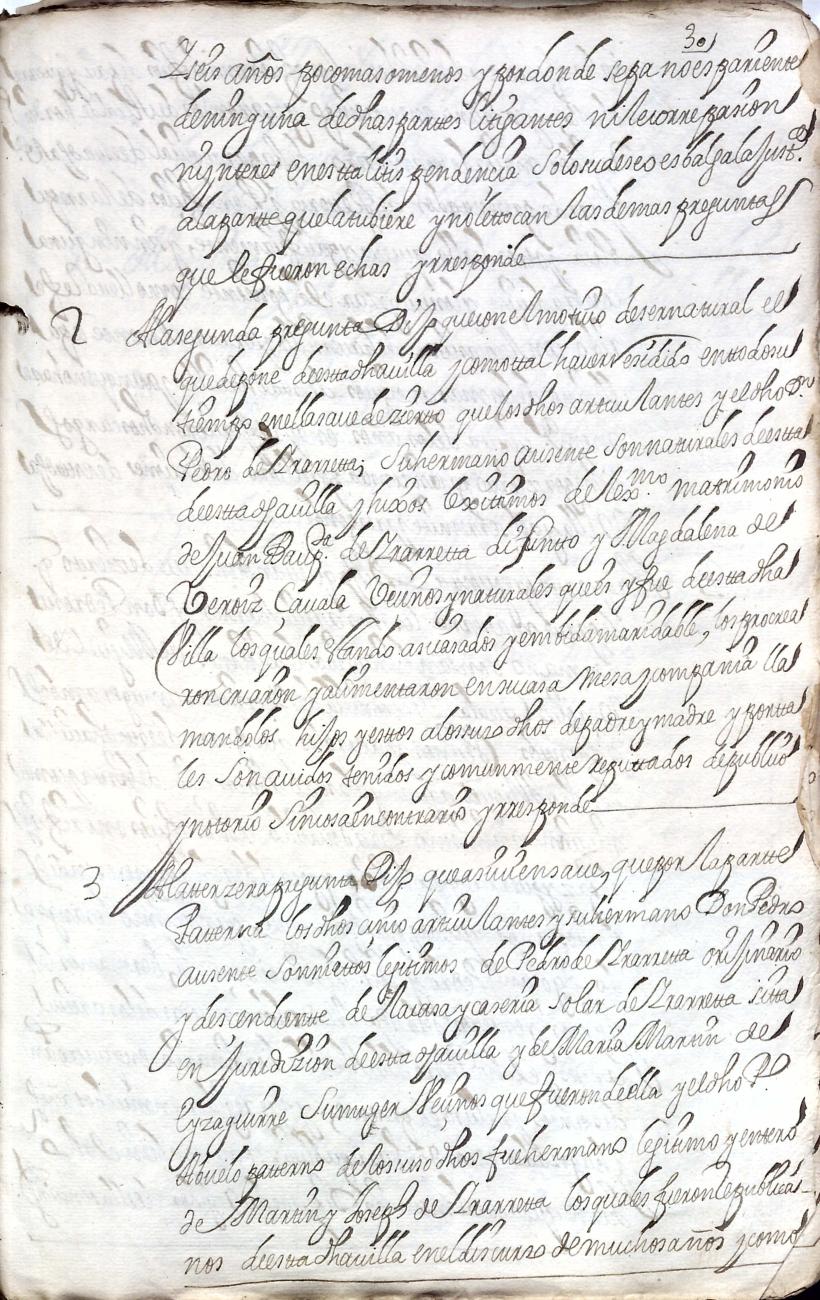 30
Zeis años poco mas o menos y por donde sepa no es pariente
de ninguna de dhas partes litigantes ni le corre pasion
ni ynteres en estta litis pendencia solo su deseo es balga la Justª
a la partte que la tubiere y no le ttocan las demas preguntas
que le fueron echas y rresponde
2 A la segunda pregunta Dijo que con el motivo de ser natural el
que depone de estta dha villa y como ttal haver residido en ttodo su
tiempo en ella save de zierto que los dhos articulantes y el dho Dn
Pedro de Yrarretta, su hermano ausente son naturales de estta
de estta dha villa y hixos lexitimos de lexmo matrimonio
de Juan Baupta de Yrarretta difuntto y Magdalena de
Veroiz Cavala Vecinos y naturales que es y fue de estta dha
Villa los quales estando asi casados y en bida maridable, los procrea
ron criaron y alimentaron en su casa mesa y compania lla
mandolos hijos y estos a los suso dhos de padre y madre y por tta
les son avidos tenidos y comunmente reputtados de publico
y notorio sin cosa en contrario y rresponde
3 A la tterzera pregunta Dijo que asi vien save, que por la partte
Patterna los dhos cinco articulantes y su hermano Don Pedro
ausente son niettos legitimos de Pedro de Yrarretta orijinario
y descendiente de la casa y caseria solar de Yrarretta sitta
en Juridizion de estta dha villa y de Maria Martin de
Eyzaguirre su muger Vecinos que fueron de ella y el dho Po
Abuelo patterno de los suso dhos fue hermano legitimo y entero
de Martin y Joseph de Yrarretta los quales fueron republica-
nos de estta dha villa en el discurso de muchos años y como